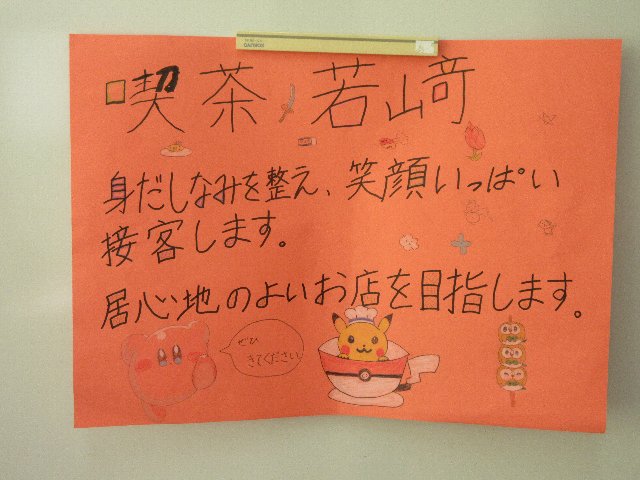 喫茶 若﨑
身だしなみを整え、笑顔いっぱい
接客します。
居心地のよいお店を目指します。
ぜひ
きてください